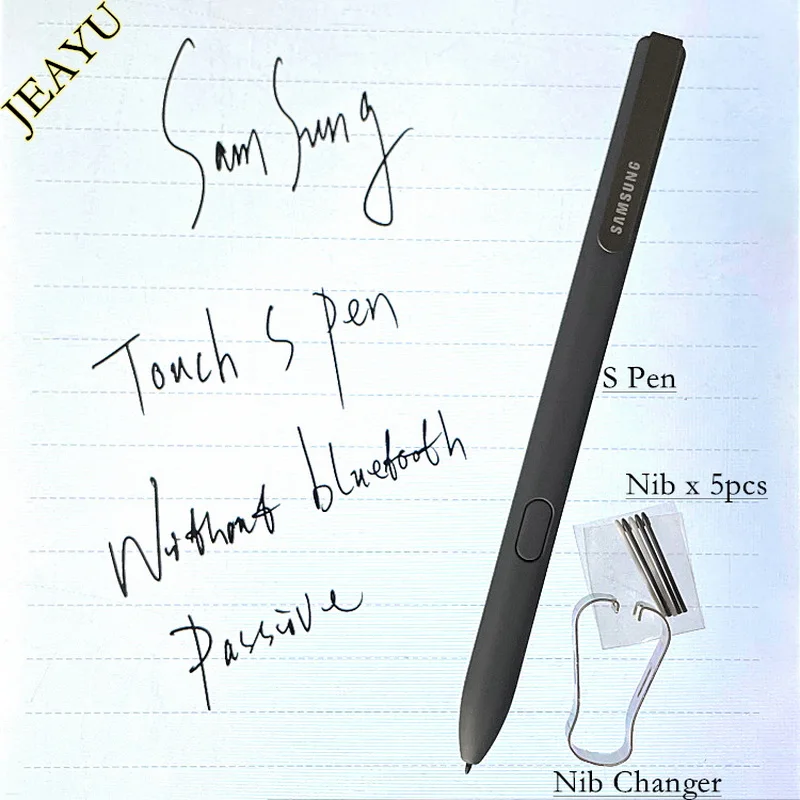 JEAYU
SamSung
SAMSUNG
Touch S Pen
S Pen
Without bluetooth
Nib x 5pcs
Passive
Nib Changer